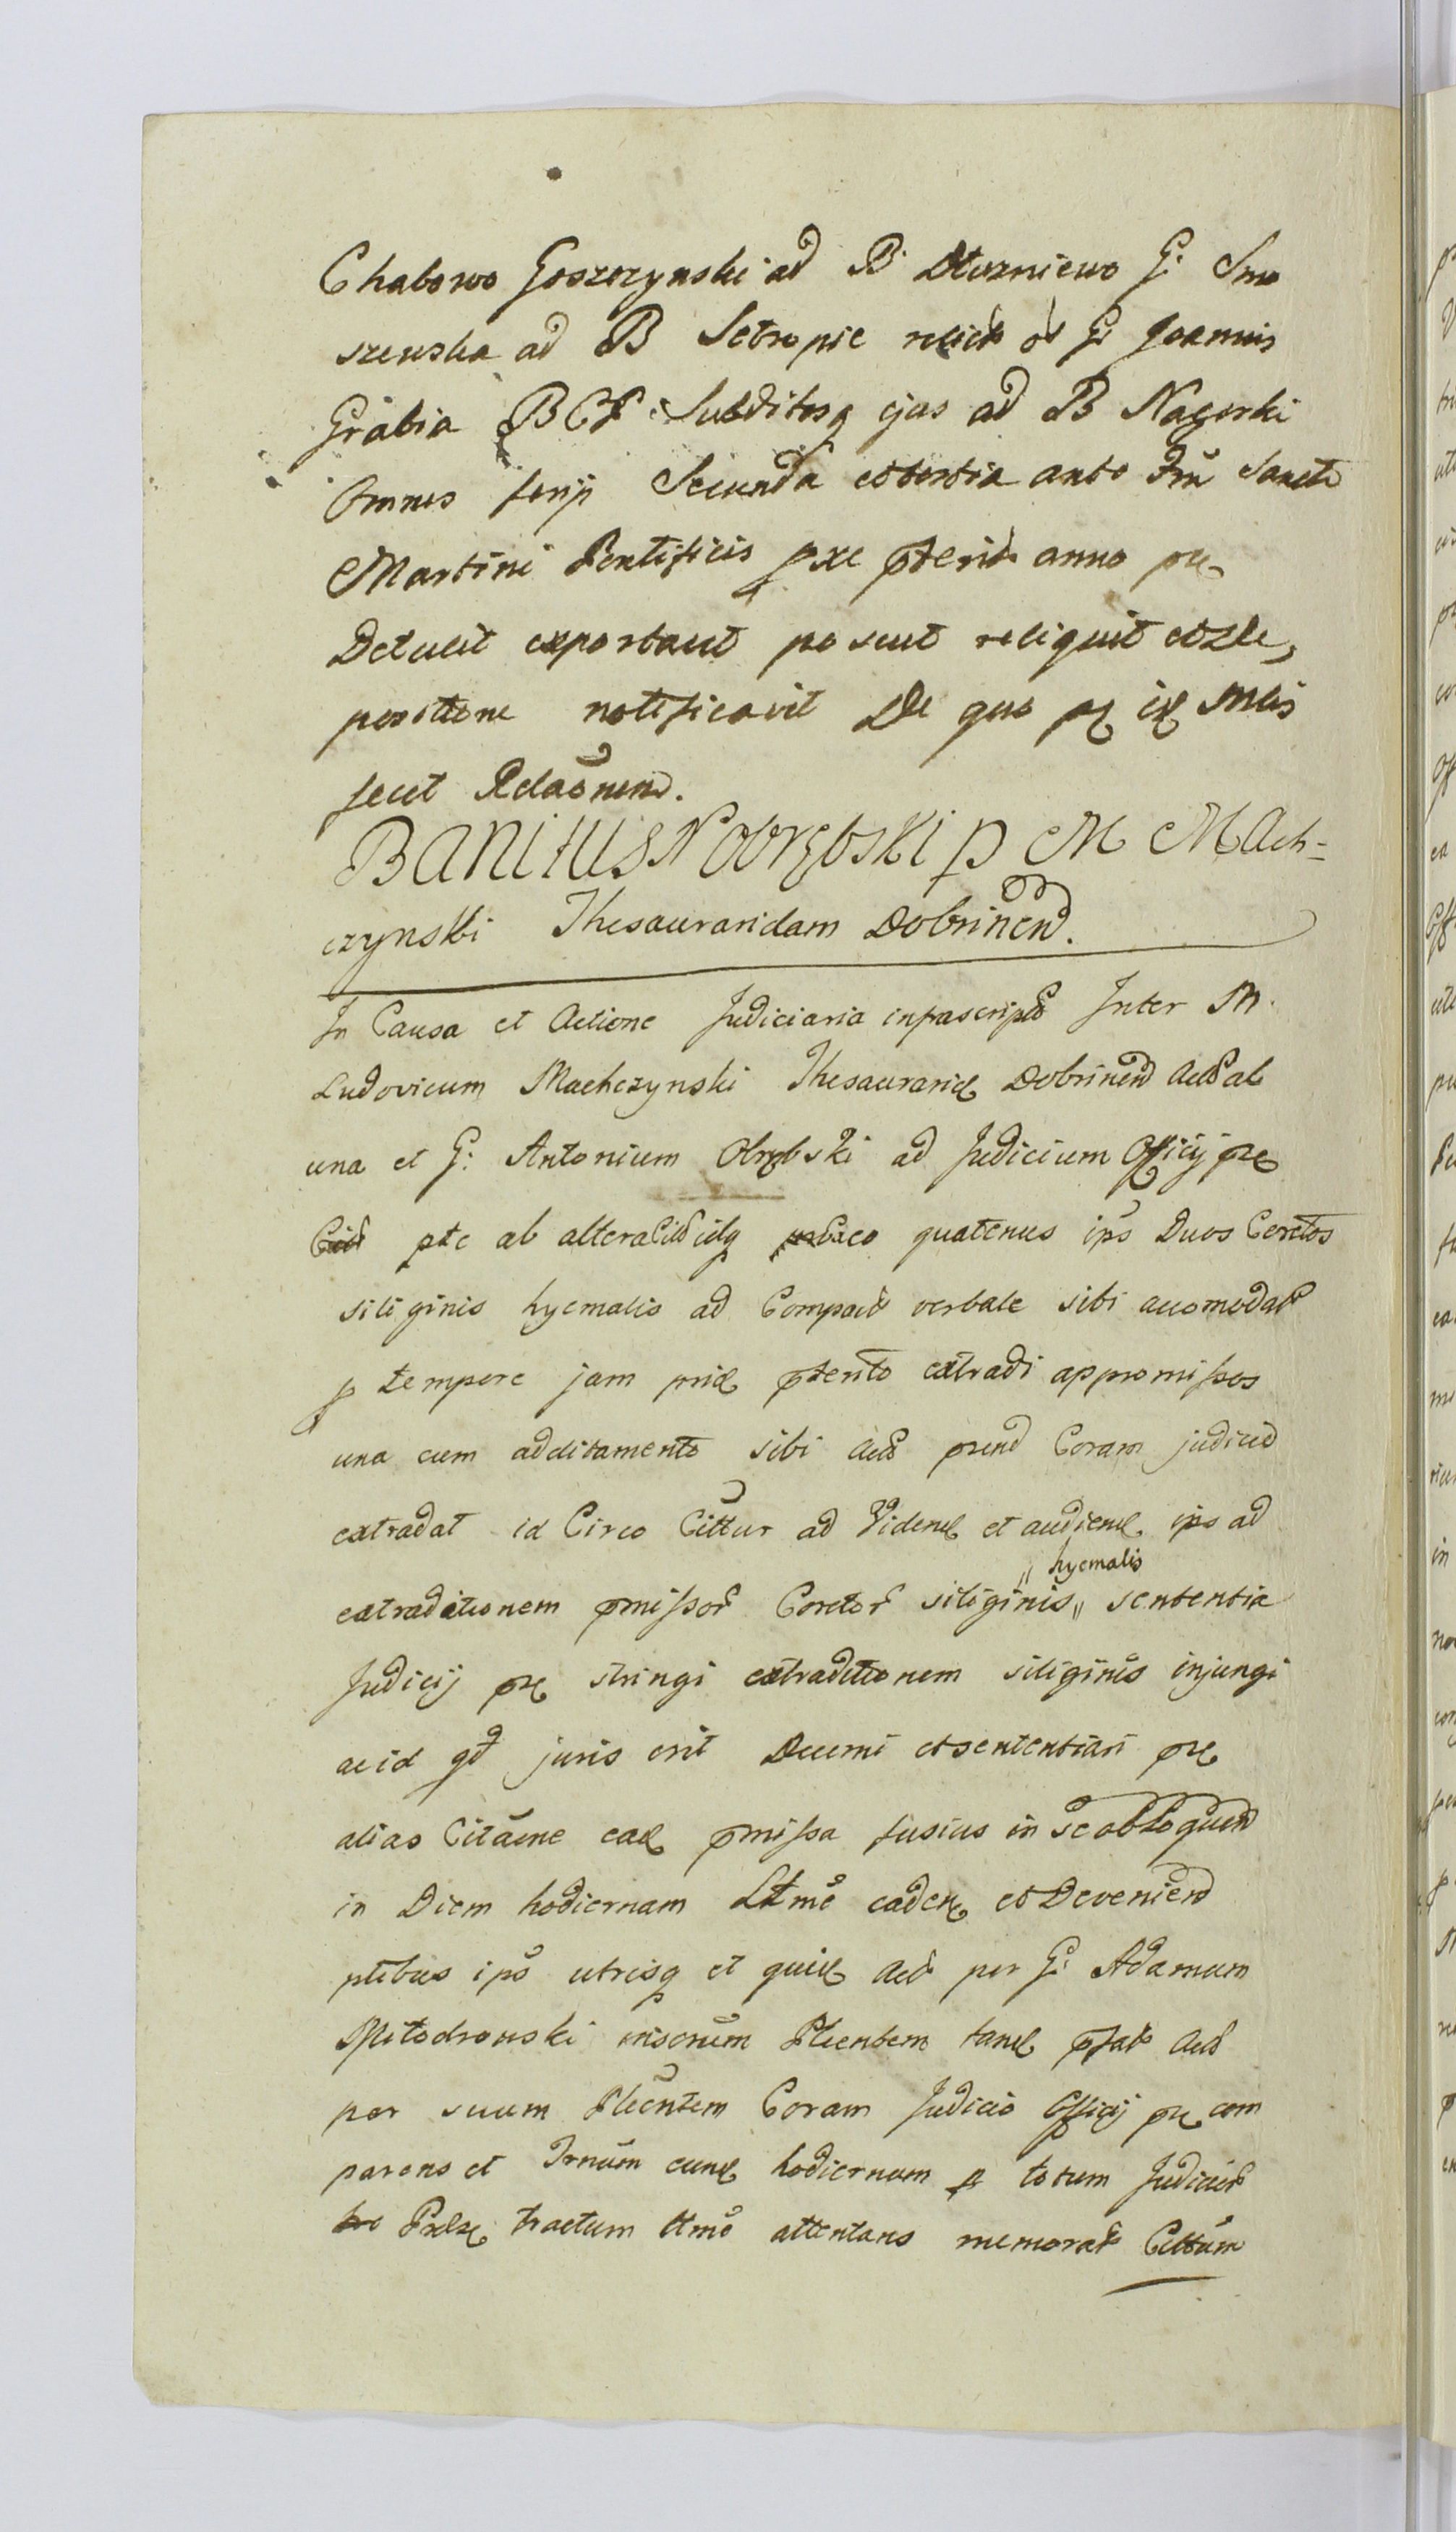 Chabowo Goszczynski ad B Dłuzniewo G: Smo
szewska ad B Setropie relict ol G: Joannis
Grabia B CP: Subditosq ejus ad B Nagorki
Omnes ferij Secunda et tertia ante Frũ Sancti
Martini Pontificis pxe pterit anno pre
Detulit exportavit posuit reliquit et de
positione notificavit De quo pq iq Mlis
fecit Relaõnem.
Banitus N Obrębski p M Mach=
czynski Thesauraridam Dobrinen.
In Causa et Actione Judiciaria infrascripta Inter M.
Ludovicum Machczynski Thesaurarid Dobrinen Act ab
una et G: Antonium Obrębski ad Judicium Officij pre
pte ab altera Cit idq quatenus ips Duos Coretos
siliginis hyemalis ad Compact verbale sibi accomodat
p tempore jam prid pterito extradi appromissos
una cum additamento sibi Act prend Coram judicio
extradat id Circo Cittur ad Videnđ et audiend ips ad
extraditionem pmissor Coretor siliginis " hyemalis " sententia
Judicij pre stringi extraditionem siliginis injungi
ac id qd juris erit Decerni et sententiari pre
alias Citãone ead pmissa fusius in se obloquen
in Diem hodiernam Lttme caden et Devenien
ptibus ips utrisq et quid Act per G: Adamum
Mitodrowski Plentem tand pfat Act
per suum Plentem Coram Judicio Officij pre com
parens et Trnum cund hodiernum p totum Judicior
Prlse tractum ttme attentans memorat Cittum